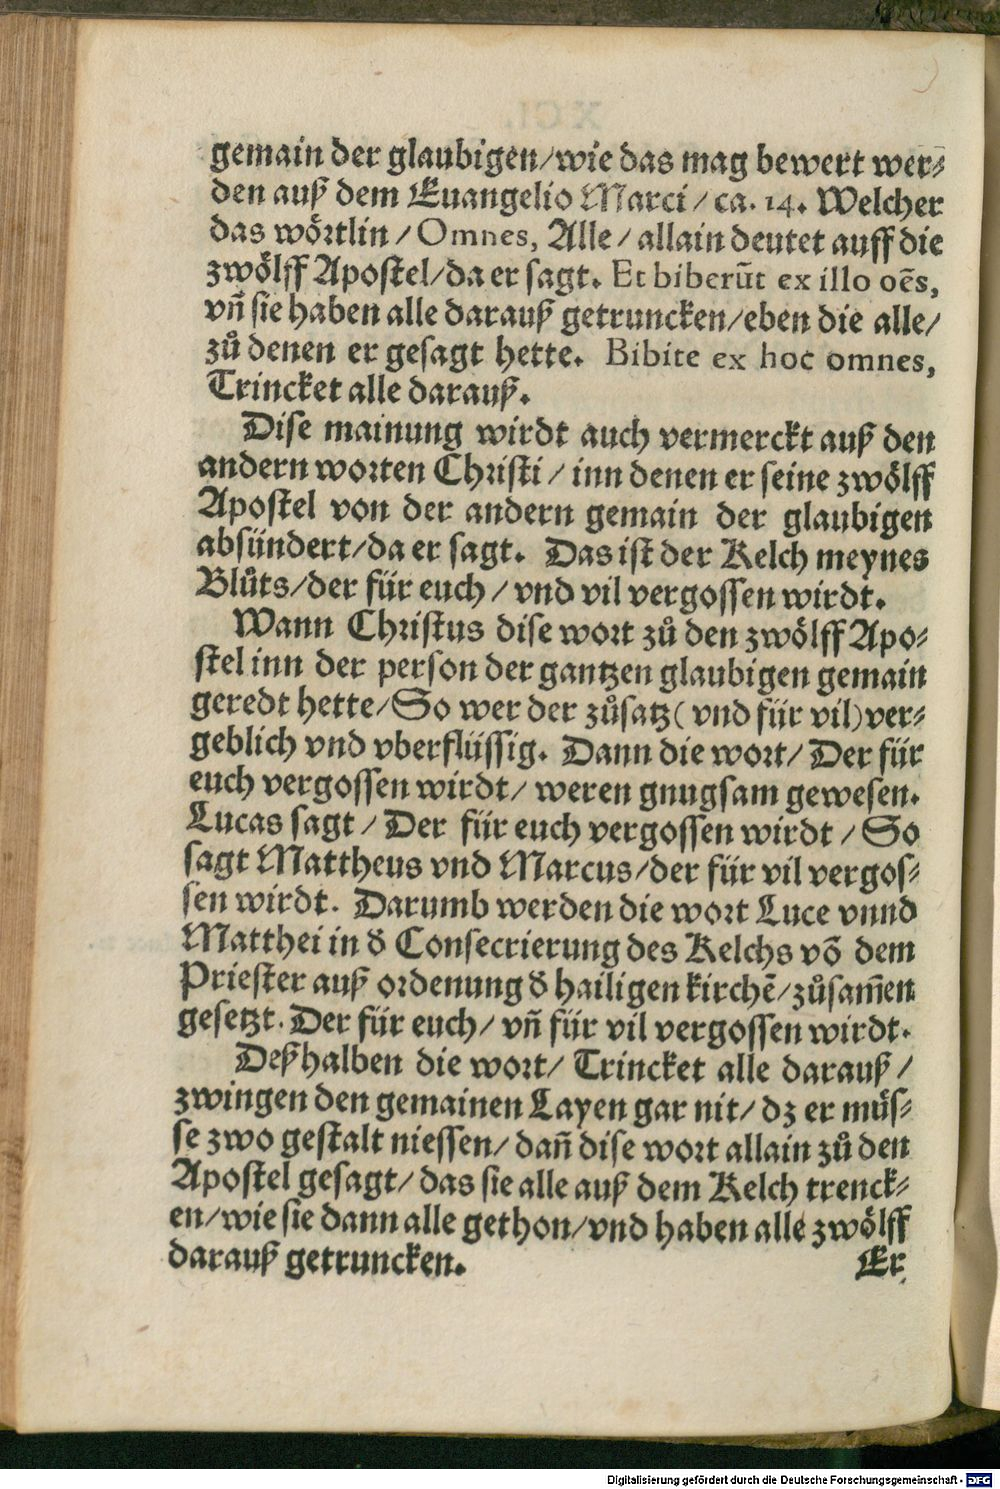 gemain der glaubigen/wie das mag bewert wer⸗
den auß dem Euangelio Marci/ ca. 14. Welcher
das wörtlin/ Omnes, Alle/ allain deutet auff die
zwölff Apostel/da er sagt. Et biberũt ex illo oẽs,
vñ sie haben alle darauß getruncken/eben die alle/
zů denen er gesagt hette. Bibite ex hoc omnes,
Trincket alle darauß.
Dise mainung wirdt auch vermerckt auß den
andern worten Christi/ inn denen er seine zwölff
Apostel von der andern gemain der glaubigen
absündert/da er sagt. Das ist der Kelch meynes
Blůts/der für euch/ vnd vil vergossen wirdt.
Wann Christus dise wort zů den zwölff Apo⸗
stel inn der person der gantzen glaubigen gemain
geredt hette/So wer der zůsatz( vnd für vil)ver⸗
geblich vnd vberflüssig. Dann die wort/ Der für
euch vergossen wirdt/ weren gnugsam gewesen.
Lucas sagt/ Der für euch vergossen wirdt/ So
sagt Mattheus vnd Marcus/der für vil vergos⸗
sen wirdt. Darumb werden die wort Luce vnnd
Matthei in đ Consecrierung des Kelchs võ dem
Priester auß ordenung đ hailigen kirchẽ/zůsam̃en
gesetzt. Der für euch/ vñ für vil vergossen wirdt.
Deßhalben die wort/ Trincket alle darauß/
zwingen den gemainen Layen gar nit/ dz er müs⸗
se zwo gestalt niessen/ dañ dise wort allain zů den
Apostel gesagt/ das sie alle auß dem Kelch trenck⸗
en/wie sie dann alle gethon/vnd haben alle zwölff
darauß getruncken.
Er
Digitalisierung gefördert durch die Deutsche Forschungsgemeinschaft - DFG